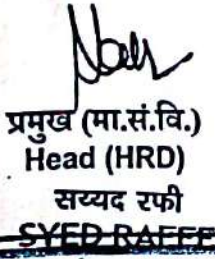 प्रमुख (मा.सं.वि.)
Head (HRD)
सय्यद रफी
SYED RAFEE